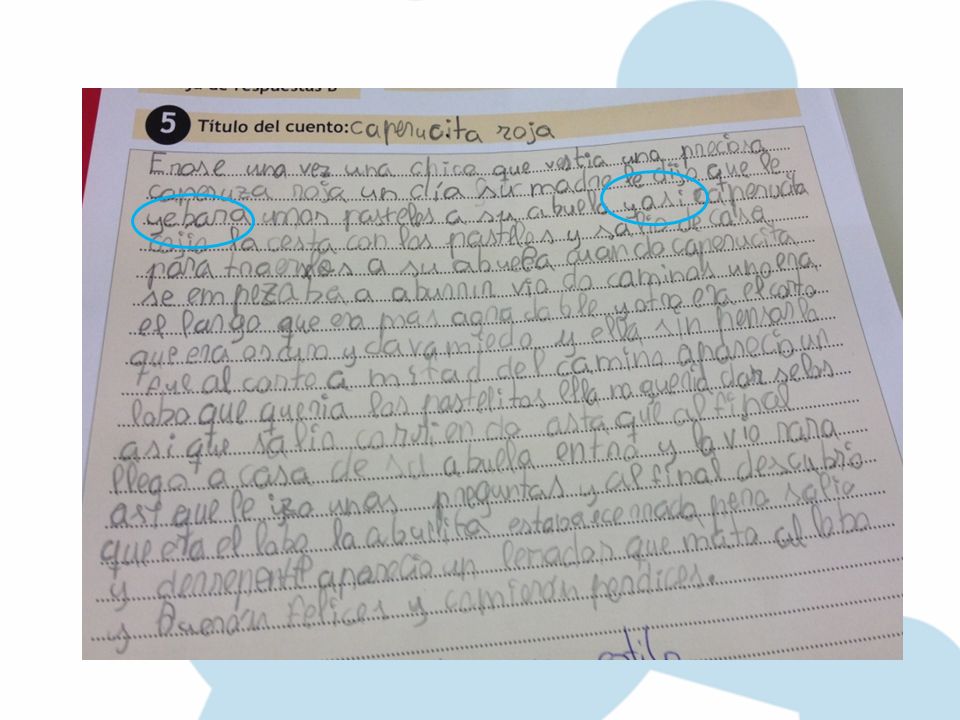 5 Título del cuento: caperucita roja
Erase una vez una chica que vestia una preciosa
caperuza roja un día su madre le dijo que le
yebara unos pasteles a su abuela y asi caperucita
cojio la cesta con los pasteles y salio de casa
para traerlos a su abuela cuando caperucita
se empezaba a aburrir vio do caminos uno era
el largo que era mas agradable y otro era el corto
que era oscuro y dava miedo y ella sin pensarlo
fue al corto a mitad del camino aparecio un
lobo que queria los pastelitos ella no queria darselos
asi que salio corriendo asta que al final
llego a casa de su abuela entro y la vio rara
asi que le izo unas preguntas y al final descubrio
que era el lobo la abuelita estaba ecerrada pero salio
y derrepente aparecio un leñador que mata al lobo
y fueron felices y comieron perdices.
estilo